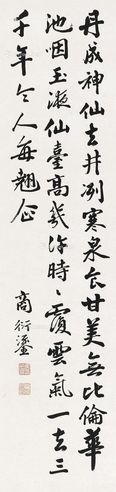 丹成神仙去井冽寒泉食甘美無比倫華
池咽玉液仙臺高幾許時時覆雲氣一去三
千年令人每翹企
商衍鎏